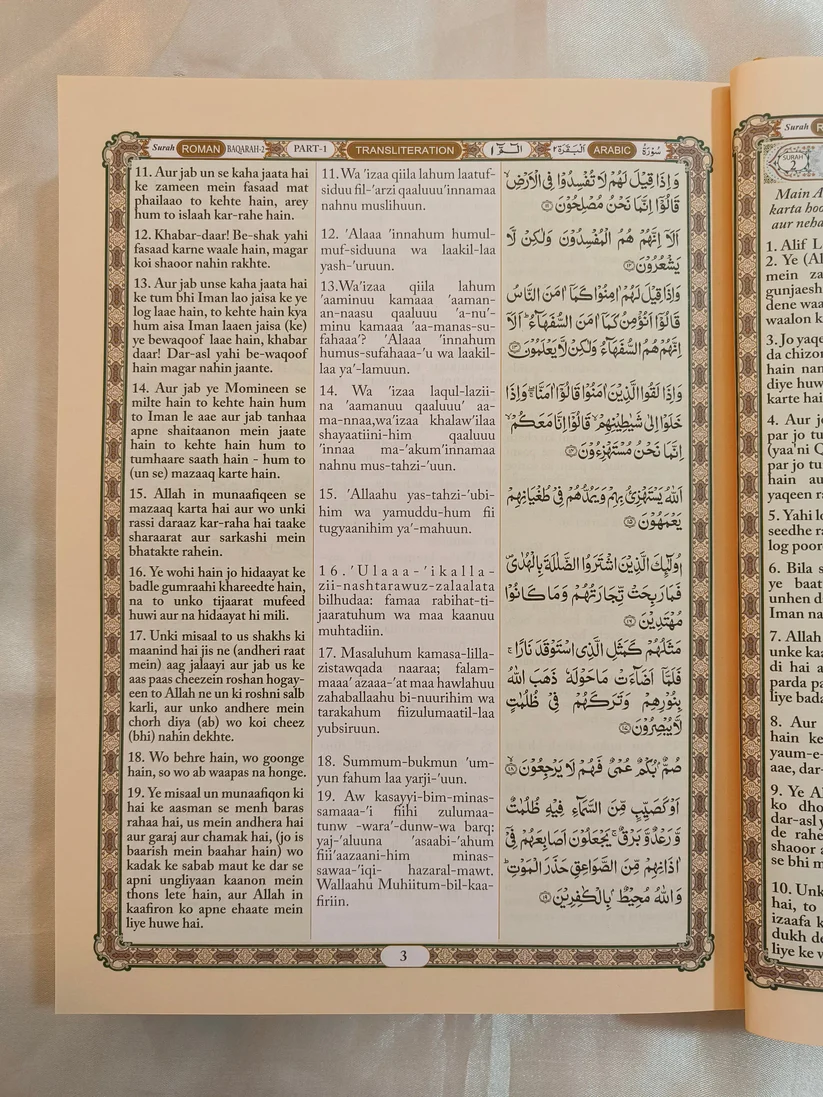 Surah ROMAN BAQARAH-2 PART-1 TRANSLITERATION الٓمّٓ ١ اَلْبَقَرَة ٢ ARABIC سُوْرَةُ
11. Aur jab un se kaha jaata hai
ke zameen mein fasaad mat
phailaao to kehte hain, arey
hum to islaah kar-rahe hain.
12. Khabar-daar! Be-shak yahi
fasaad karne waale hain, magar
koi shaoor nahin rakhte.
13. Aur jab unse kaha jaata hai
ke tum bhi Iman lao jaisa ke ye
log laae hain, to kehte hain kya
hum aisa Iman laaen jaisa (ke)
ye bewaqoof laae hain, khabar
daar! Dar-asl yahi be-waqoof
hain magar nahin jaante.
14. Aur jab ye Momineen se
milte hain to kehte hain hum
to Iman le aae aur jab tanhaa
apne shaitaanon mein jaate
hain to kehte hain hum to
tumhaare saath hain - hum to
(un se) mazaaq karte hain.
15. Allah in munaafiqeen se
mazaaq karta hai aur wo unki
rassi daraaz kar-raha hai taake
sharaarat aur sarkashi mein
bhatakte rahein.
16. Ye wohi hain jo hidaayat ke
badle gumraahi khareedte hain,
na to unko tijaarat mufeed
huwi aur na hidaayat hi mili.
17. Unki misaal to us shakhs ki
maanind hai jis ne (andheri raat
mein) aag jalaayi aur jab us ke
aas paas cheezein roshan hogay-
een to Allah ne un ki roshni salb
karli, aur unko andhere mein
chorh diya (ab) wo koi cheez
(bhi) nahin dekhte.
18. Wo behre hain, wo goonge
hain, so wo ab waapas na honge.
19. Ye misaal un munaafiqon ki
hai ke aasman se menh baras
rahaa hai, us mein andhera hai
aur garaj aur chamak hai, (jo is
baarish mein baahar hain) wo
kadak ke sabab maut ke dar se
apni ungliyaan kaanon mein
thons lete hain, aur Allah in
kaafiron ko apne ehaate mein
liye huwe hai.
11. Wa 'izaa qiila lahum laatuf-
siduu fil-'arzi qaaluuu'innamaa
nahnu muslihuun.
12. 'Alaaa 'innahum humul-
muf-siduuna wa laakil-laa
yash-'uruun.
13.Wa'izaa qiila lahum
'aaminuu kamaaa 'aaman-
an-naasu qaaluuu 'a-nu'-
minu kamaaa 'aa-manas-su-
fahaaa'? 'Alaaa 'innahum
humus-sufahaaa-'u wa laakil-
laa ya'-lamuun.
14. Wa 'izaa laqul-lazii-
na 'aamanuu qaaluuu' aa-
ma-nnaa,wa'izaa khalaw'ilaa
shayaatiini-him qaaluuu
'innaa ma-'akum'innamaa
nahnu mus-tahzi-'uun.
15. 'Allaahu yas-tahzi-'ubi-
him wa yamuddu-hum fii
tugyaanihim ya'-mahuun.
16.'Ulaaa-'ikalla-
zii-nashtarawuz-zalaalata
bilhudaa: famaa rabihat-ti-
jaaratuhum wa maa kaanuu
muhtadiin.
17. Masaluhum kamasa-lilla-
zistawqada naaraa; falam-
maaa' azaaa-'at maa hawlahuu
zahaballaahu bi-nuurihim wa
tarakahum fiizulumaatil-laa
yubsiruun.
18. Summum-bukmun 'um-
yun fahum laa yarji-'uun.
19. Aw kasayyi-bim-minas-
samaaa-'i fiihi zulumaa-
tunw -wara'-dunw-wa barq:
yaj-'aluuna 'asaabi-'ahum
fiii'aazaani-him minas-
sawaa-'iqi- hazaral-mawt.
Wallaahu Muhiitum-bil-kaa-
firiin.
وَاِذَا قِيْلَ لَهُمْ لَا تُفْسِدُوْا فِى الْاَرْضِۙ
قَالُوْٓا اِنَّمَا نَحْنُ مُصْلِحُوْنَ ۝۱۱
اَلَآ اِنَّهُمْ هُمُ الْمُفْسِدُوْنَ وَلٰكِنْ لَّا
يَشْعُرُوْنَ ۝۱۲
وَاِذَا قِيْلَ لَهُمْ اٰمِنُوْا كَمَآ اٰمَنَ النَّاسُ
قَالُوْٓا اَنُؤْمِنُ كَمَآ اٰمَنَ السُّفَهَآءُ ؕ اَلَآ
اِنَّهُمْ هُمُ السُّفَهَآءُ وَلٰكِنْ لَّا يَعْلَمُوْنَ ۝۱۳
وَاِذَا لَقُوا الَّذِيْنَ اٰمَنُوْا قَالُوْٓا اٰمَنَّا ۖۚ وَاِذَا
خَلَوْا اِلٰى شَيٰطِيْنِهِمْ ۙ قَالُوْٓا اِنَّا مَعَكُمْ ۙ
اِنَّمَا نَحْنُ مُسْتَهْزِءُوْنَ ۝۱۴
اَللّٰهُ يَسْتَهْزِئُ بِهِمْ وَيَمُدُّهُمْ فِىْ طُغْيَانِهِمْ
يَعْمَهُوْنَ ۝۱۵
اُولٰٓئِكَ الَّذِيْنَ اشْتَرَوُا الضَّلٰلَةَ بِالْهُدٰى ۪
فَمَا رَبِحَتْ تِّجَارَتُهُمْ وَمَا كَانُوْا
مُهْتَدِيْنَ ۝۱۶
مَثَلُهُمْ كَمَثَلِ الَّذِى اسْتَوْقَدَ نَارًا ۚ
فَلَمَّآ اَضَآءَتْ مَا حَوْلَهٗ ذَهَبَ اللّٰهُ
بِنُوْرِهِمْ وَتَرَكَهُمْ فِىْ ظُلُمٰتٍ
لَّا يُبْصِرُوْنَ ۝۱۷
صُمٌّۢ بُكْمٌ عُمْىٌ فَهُمْ لَا يَرْجِعُوْنَ ۝۱۸
اَوْ كَصَيِّبٍ مِّنَ السَّمَآءِ فِيْهِ ظُلُمٰتٌ
وَّرَعْدٌ وَّبَرْقٌ ۚ يَجْعَلُوْنَ اَصَابِعَهُمْ فِىْٓ
اٰذَانِهِمْ مِّنَ الصَّوَاعِقِ حَذَرَ الْمَوْتِ ؕ
وَاللّٰهُ مُحِيْطٌۢ بِالْكٰفِرِيْنَ ۝۱۹
3
Surah
SURAH
2
Main A
karta hoo
aur neha
1. Alif L
2. Ye (Al
mein za
gunjaesh
dene waa
waalon k
3. Jo yaqe
da chizon
hain nam
diye huw
karte hai
4. Aur jo
par jo tu
(yaa'ni Q
par jo tu
hain au
yaqeen ra
5. Yahi lo
seedhe ra
log poor
6. Bila s
ye baat
unhen d
Iman na
7. Allah
unke kaa
di hai a
parda pa
liye bada
8. Aur
hain ke
yaum-e-
aae, dar-
9. Ye Al
ko dho
dar-asl y
de rahe
shaoor
se bhi m
10. Unk
hai, to
izaafa k
dukh de
liye ke w